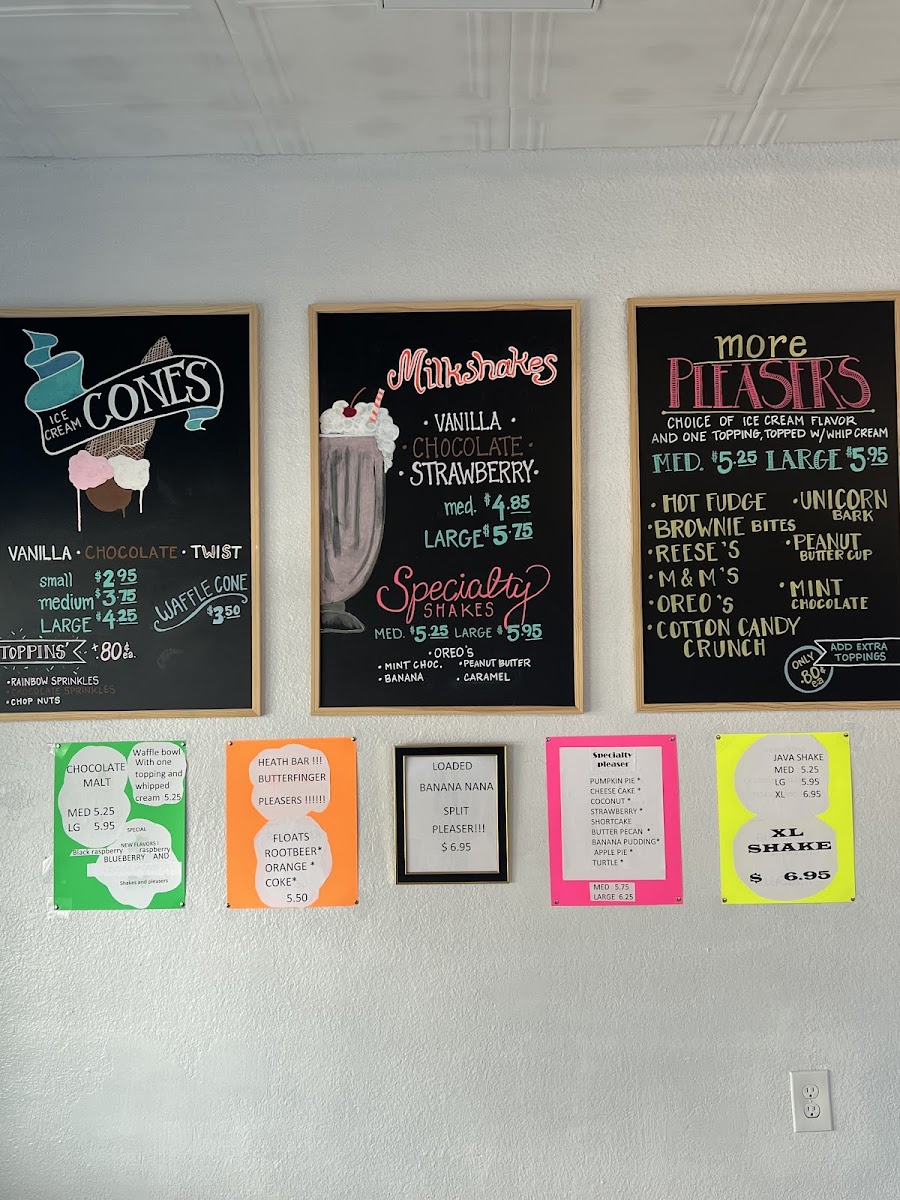 ICE
CREAM
CONES
VANILLA · CHOCOLATE · TWIST
small $2.95
medium $3.75
LARGE $4.25
WAFFLE CONE
$3.50
TOPPINS' +.80¢ ea.
• RAINBOW SPRINKLES
• CHOCOLATE SPRINKLES
• CHOP NUTS
Milkshakes
· VANILLA ·
· CHOCOLATE ·
· STRAWBERRY ·
med. $4.85
LARGE $5.75
Specialty
SHAKES
MED. $5.25 LARGE $5.95
• OREO'S
• MINT CHOC. • PEANUT BUTTER
• BANANA • CARAMEL
more
PLEASERS
CHOICE OF ICE CREAM FLAVOR
AND ONE TOPPING, TOPPED W/ WHIP CREAM
MED. $5.25 LARGE $5.95
• HOT FUDGE
• BROWNIE BITES
• REESE'S
• M&M'S
• OREO'S
• COTTON CANDY
CRUNCH
• UNICORN
BARK
• PEANUT
BUTTER CUP
• MINT
CHOCOLATE
ONLY
.80¢
ea
ADD EXTRA
TOPPINGS
CHOCOLATE
MALT
MED 5.25
LG 5.95
Waffle bowl
With one
topping and
whipped
cream 5.25
SPECIAL
NEW FLAVORS !
Black raspberry raspberry
BLUEBERRY AND
Shakes and pleasers
HEATH BAR !!!
BUTTERFINGER
PLEASERS !!!!!!
FLOATS
ROOTBEER*
ORANGE *
COKE*
5.50
LOADED
BANANA NANA
SPLIT
PLEASER!!!
$ 6.95
Specialty
pleaser
PUMPKIN PIE *
CHEESE CAKE *
COCONUT *
STRAWBERRY *
SHORTCAKE
BUTTER PECAN *
BANANA PUDDING*
APPLE PIE *
TURTLE *
MED 5.75
LARGE 6.25
JAVA SHAKE
MED 5.25
LG 5.95
XL 6.95
XL
SHAKE
$ 6.95